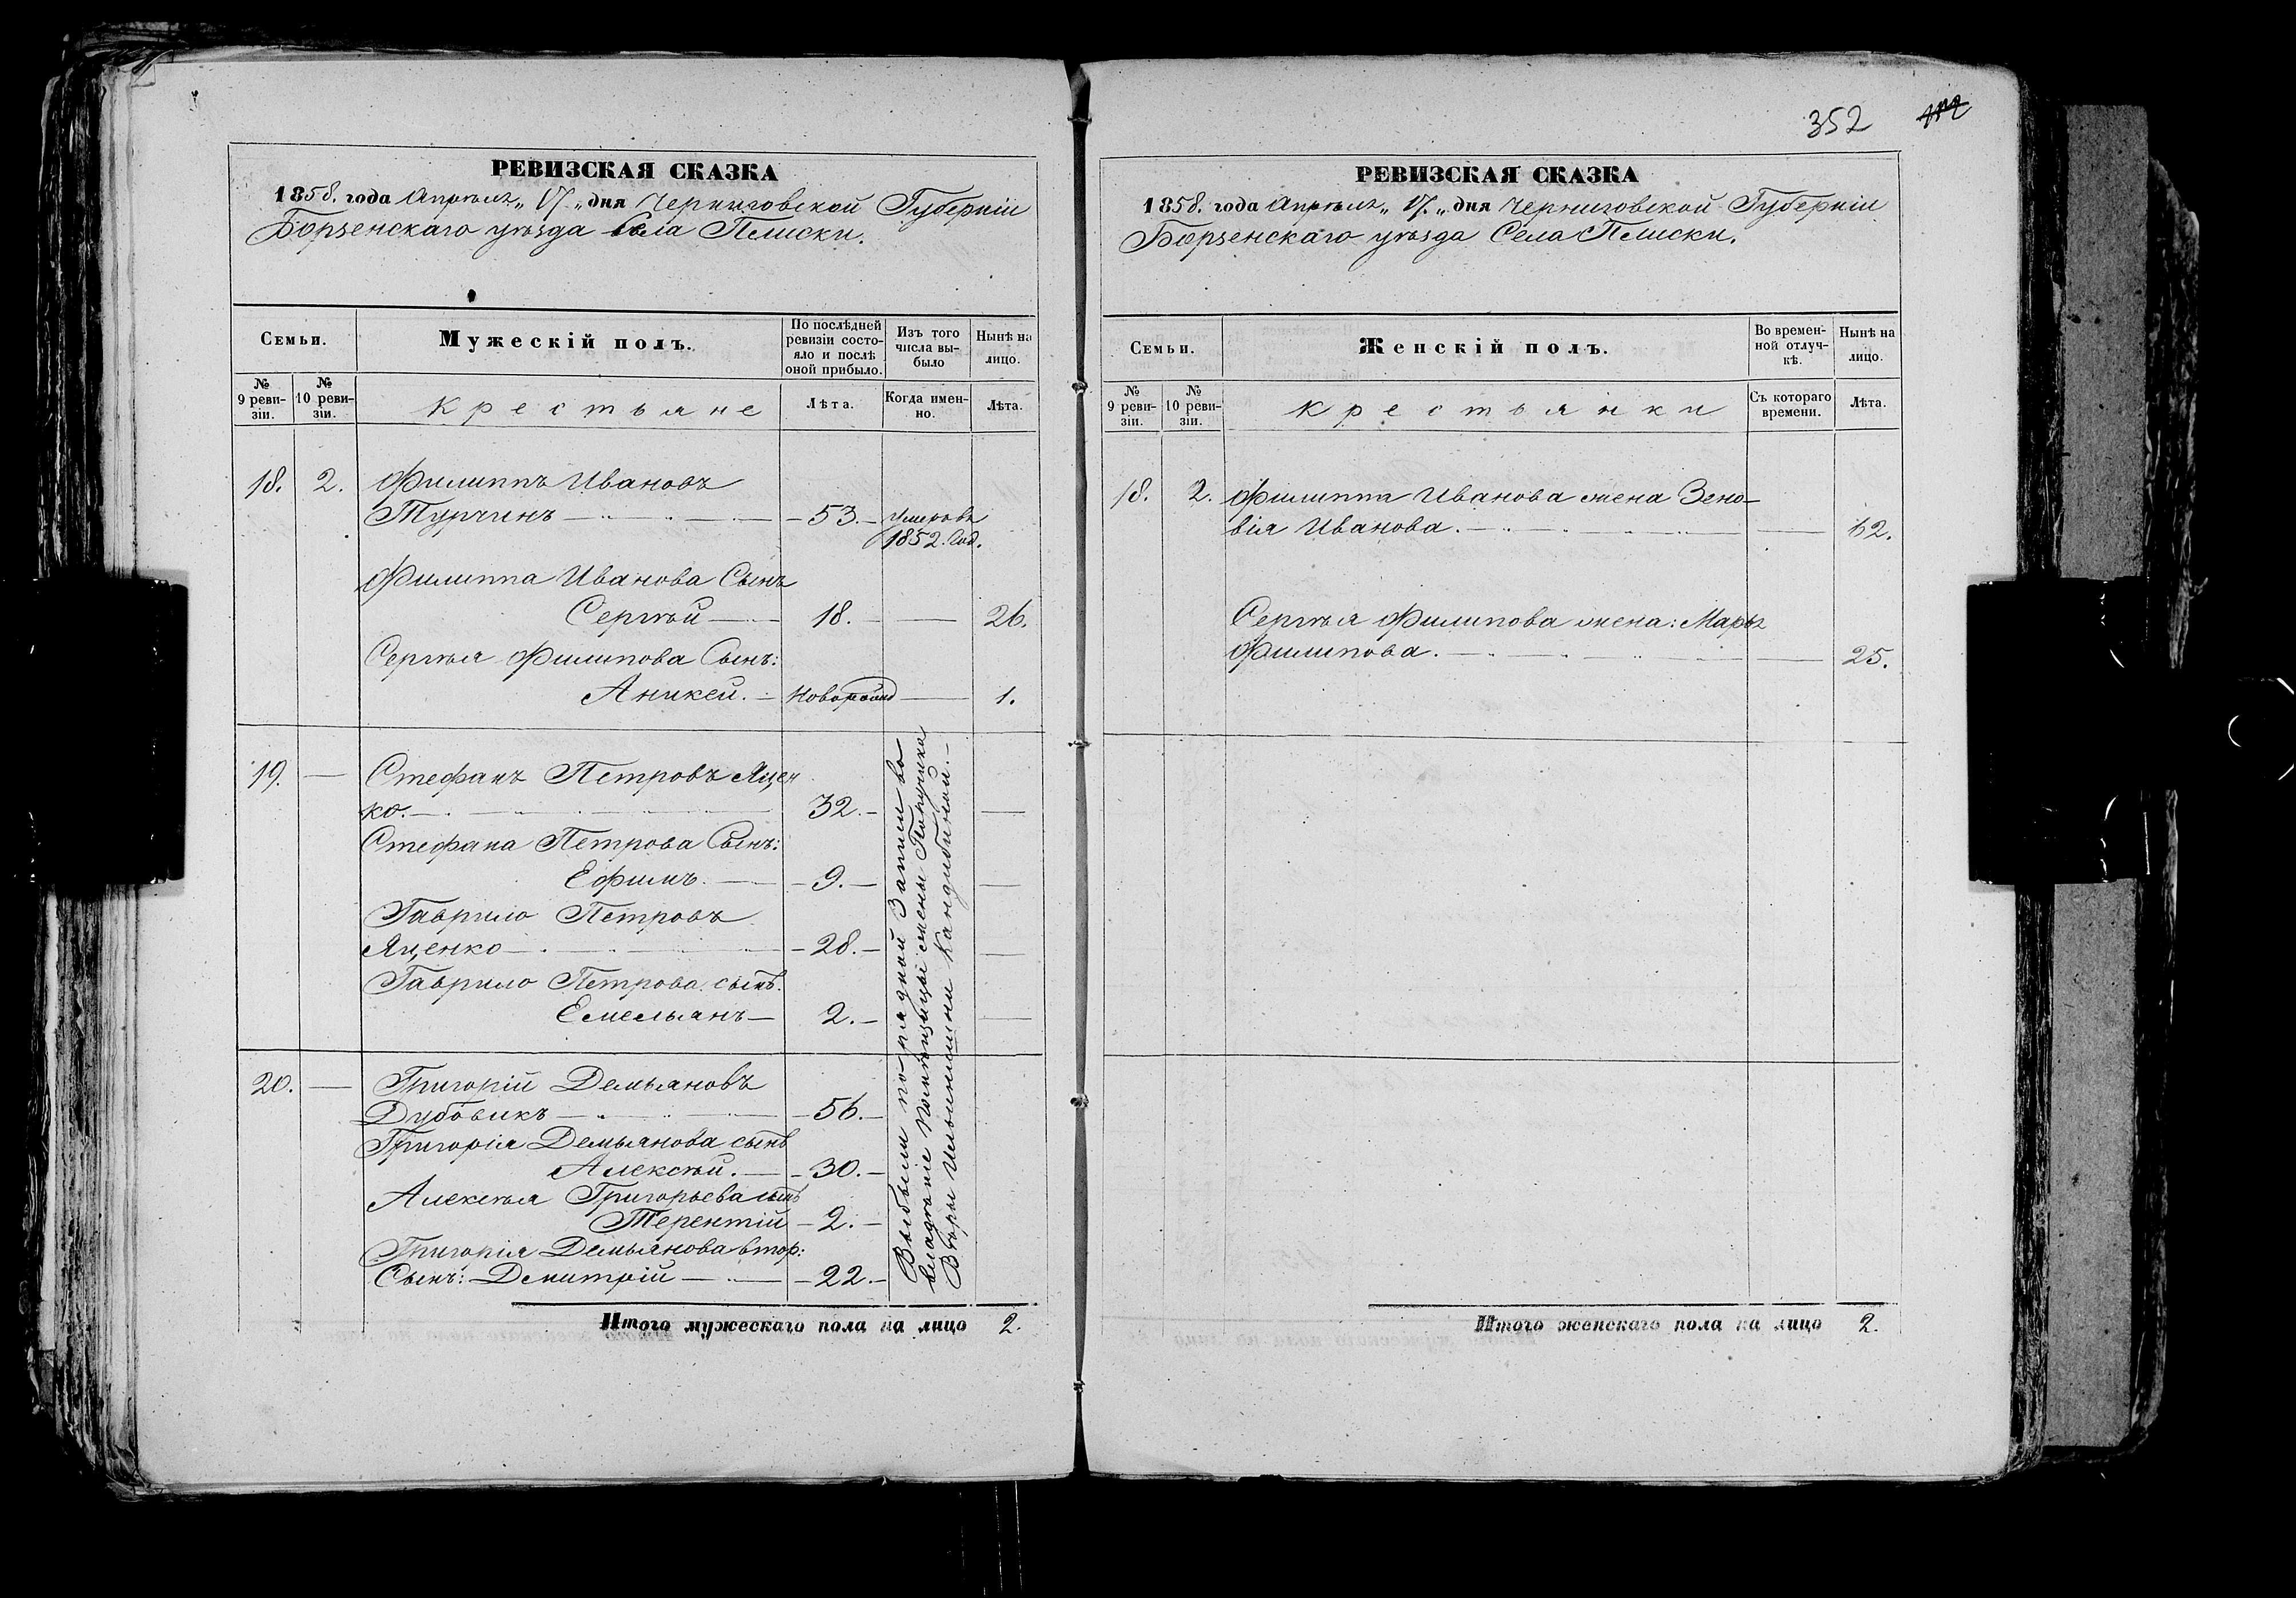 352
РЕВИЗСКАЯ СКАЗКА
1858. года Апрѣля „17„ дня Черниговской Губерніи
Борзенскаго уѣзда Села Плиски.
Семьи.
Мужескій полъ.
По послѣдней ревизіи состояло и послѣ оной прибыло.
Изъ того числа выбыло
Нынѣ на лицо.
№ 9 ревизіи.
№ 10 ревизіи.
Крестьяне
Лѣта.
Когда именно.
Лѣта.
18. 2. Филиппъ Ивановъ
Турчинъ — 53. — Умеръ въ
1852. Год.
Филиппа Иванова Сынъ
Сергѣй — 18. — 26.
Сергѣя Филипова Сынъ:
Аникей. — Новорожд — 1.
19. — Стефанъ Петровъ Яцен
ко. — 32. —
Стефана Петрова Сынъ:
Ефимъ. — 9. —
Гаврило Петровъ
Яценко — 28. —
Гаврило Петрова сынъ.
Емельянъ — 2. —
20. — Григорій Демьяновъ
Дубовикъ — 56. —
Григорія Демьянова сынъ
Алексѣй. — 30. —
Алексѣя Григорьева сынъ
Терентій — 2. —
Григорія Демьянова втор:
Сынъ: Демитрій — 22. —
Выбыли по рядной Записи во
владѣніе помѣщицы жены Паручика
Вѣры Ильинишни Кандибиной. —
Итого мужескаго пола на лицо 2.
РЕВИЗСКАЯ СКАЗКА
1858. года Апрѣля „17.„ дня Черниговской Губерніи
Борзенскаго уѣзда Села Плиски.
Семьи.
Женскій полъ.
Во временной отлучкѣ.
Нынѣ на лицо.
№ 9 ревизіи.
№ 10 ревизіи.
Крестьянки
Съ котораго времени.
Лѣта.
18. 2. Филиппа Иванова жена Зено–
вія Иванова. — 62.
Сергѣя Филипова жена: Марья
Филипова. — 25.
Итого женскаго пола на лицо 2.